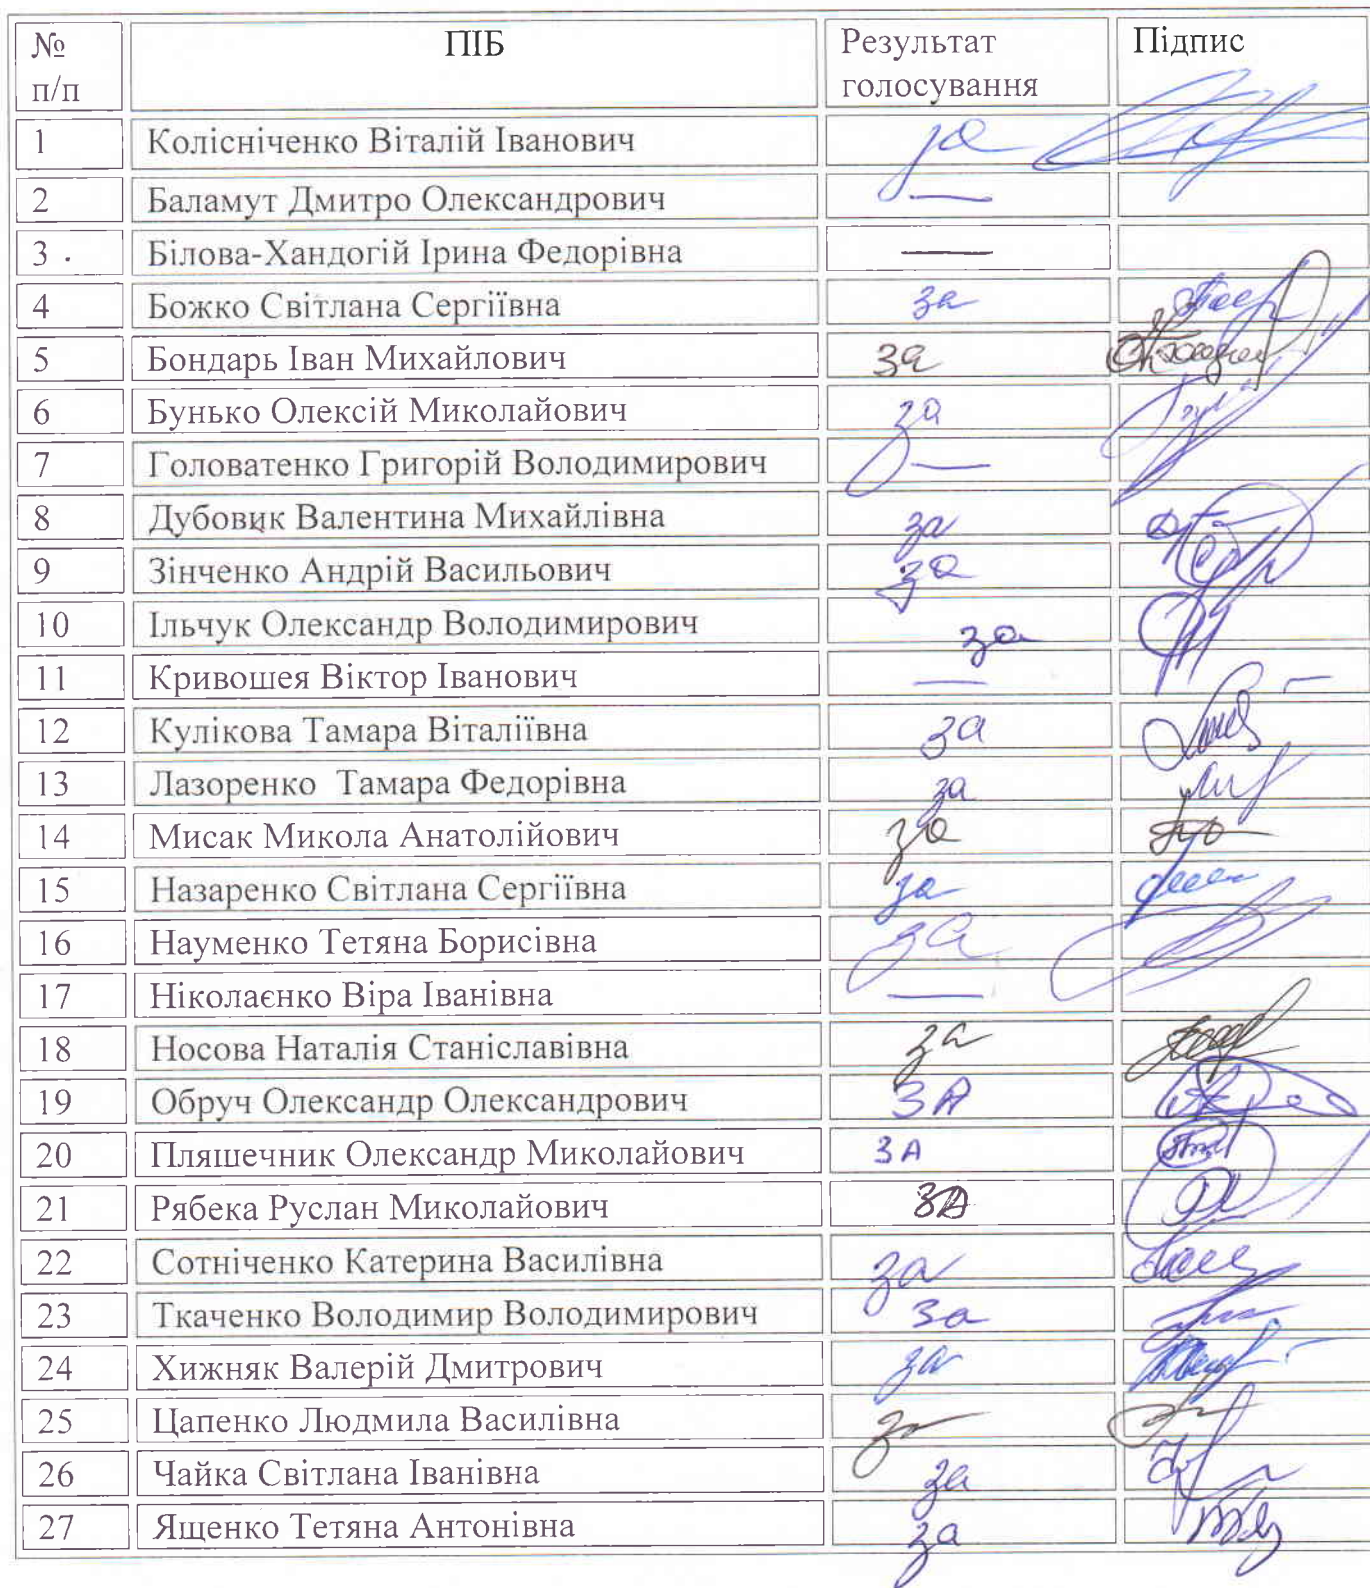 № п/п ПІБ Результат голосування Підпис
1 Колісніченко Віталій Іванович за
2 Баламут Дмитро Олександрович —
3 . Білова-Хандогій Ірина Федорівна —
4 Божко Світлана Сергіївна за
5 Бондарь Іван Михайлович за
6 Бунько Олексій Миколайович за
7 Головатенко Григорій Володимирович —
8 Дубовик Валентина Михайлівна за
9 Зінченко Андрій Васильович за
10 Ільчук Олександр Володимирович за
11 Кривошея Віктор Іванович —
12 Кулікова Тамара Віталіївна за
13 Лазоренко Тамара Федорівна за
14 Мисак Микола Анатолійович за
15 Назаренко Світлана Сергіївна за
16 Науменко Тетяна Борисівна за
17 Ніколаєнко Віра Іванівна —
18 Носова Наталія Станіславівна за
19 Обруч Олександр Олександрович ЗА
20 Пляшечник Олександр Миколайович ЗА
21 Рябека Руслан Миколайович ЗА
22 Сотніченко Катерина Василівна за
23 Ткаченко Володимир Володимирович За
24 Хижняк Валерій Дмитрович за
25 Цапенко Людмила Василівна за
26 Чайка Світлана Іванівна за
27 Ященко Тетяна Антонівна за